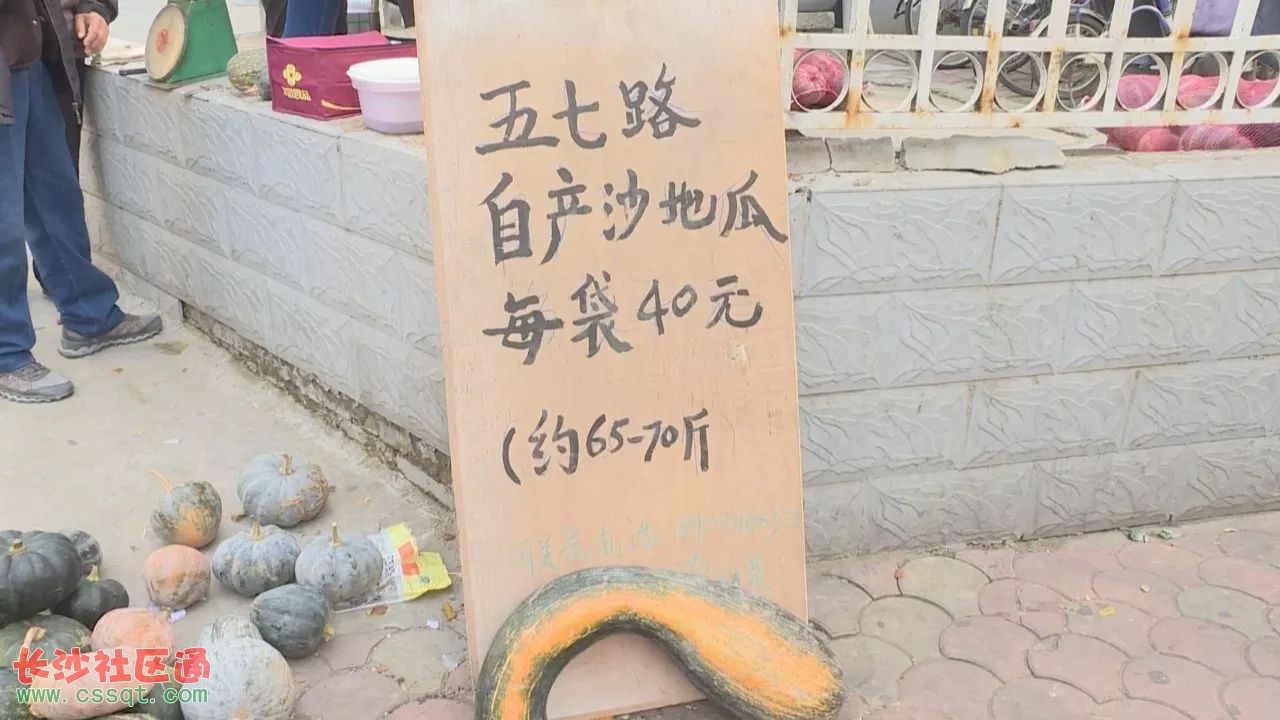 五七路
自产沙地瓜
每袋40元
(约65-70斤
联系电话
长沙社区通
www.cssqt.com